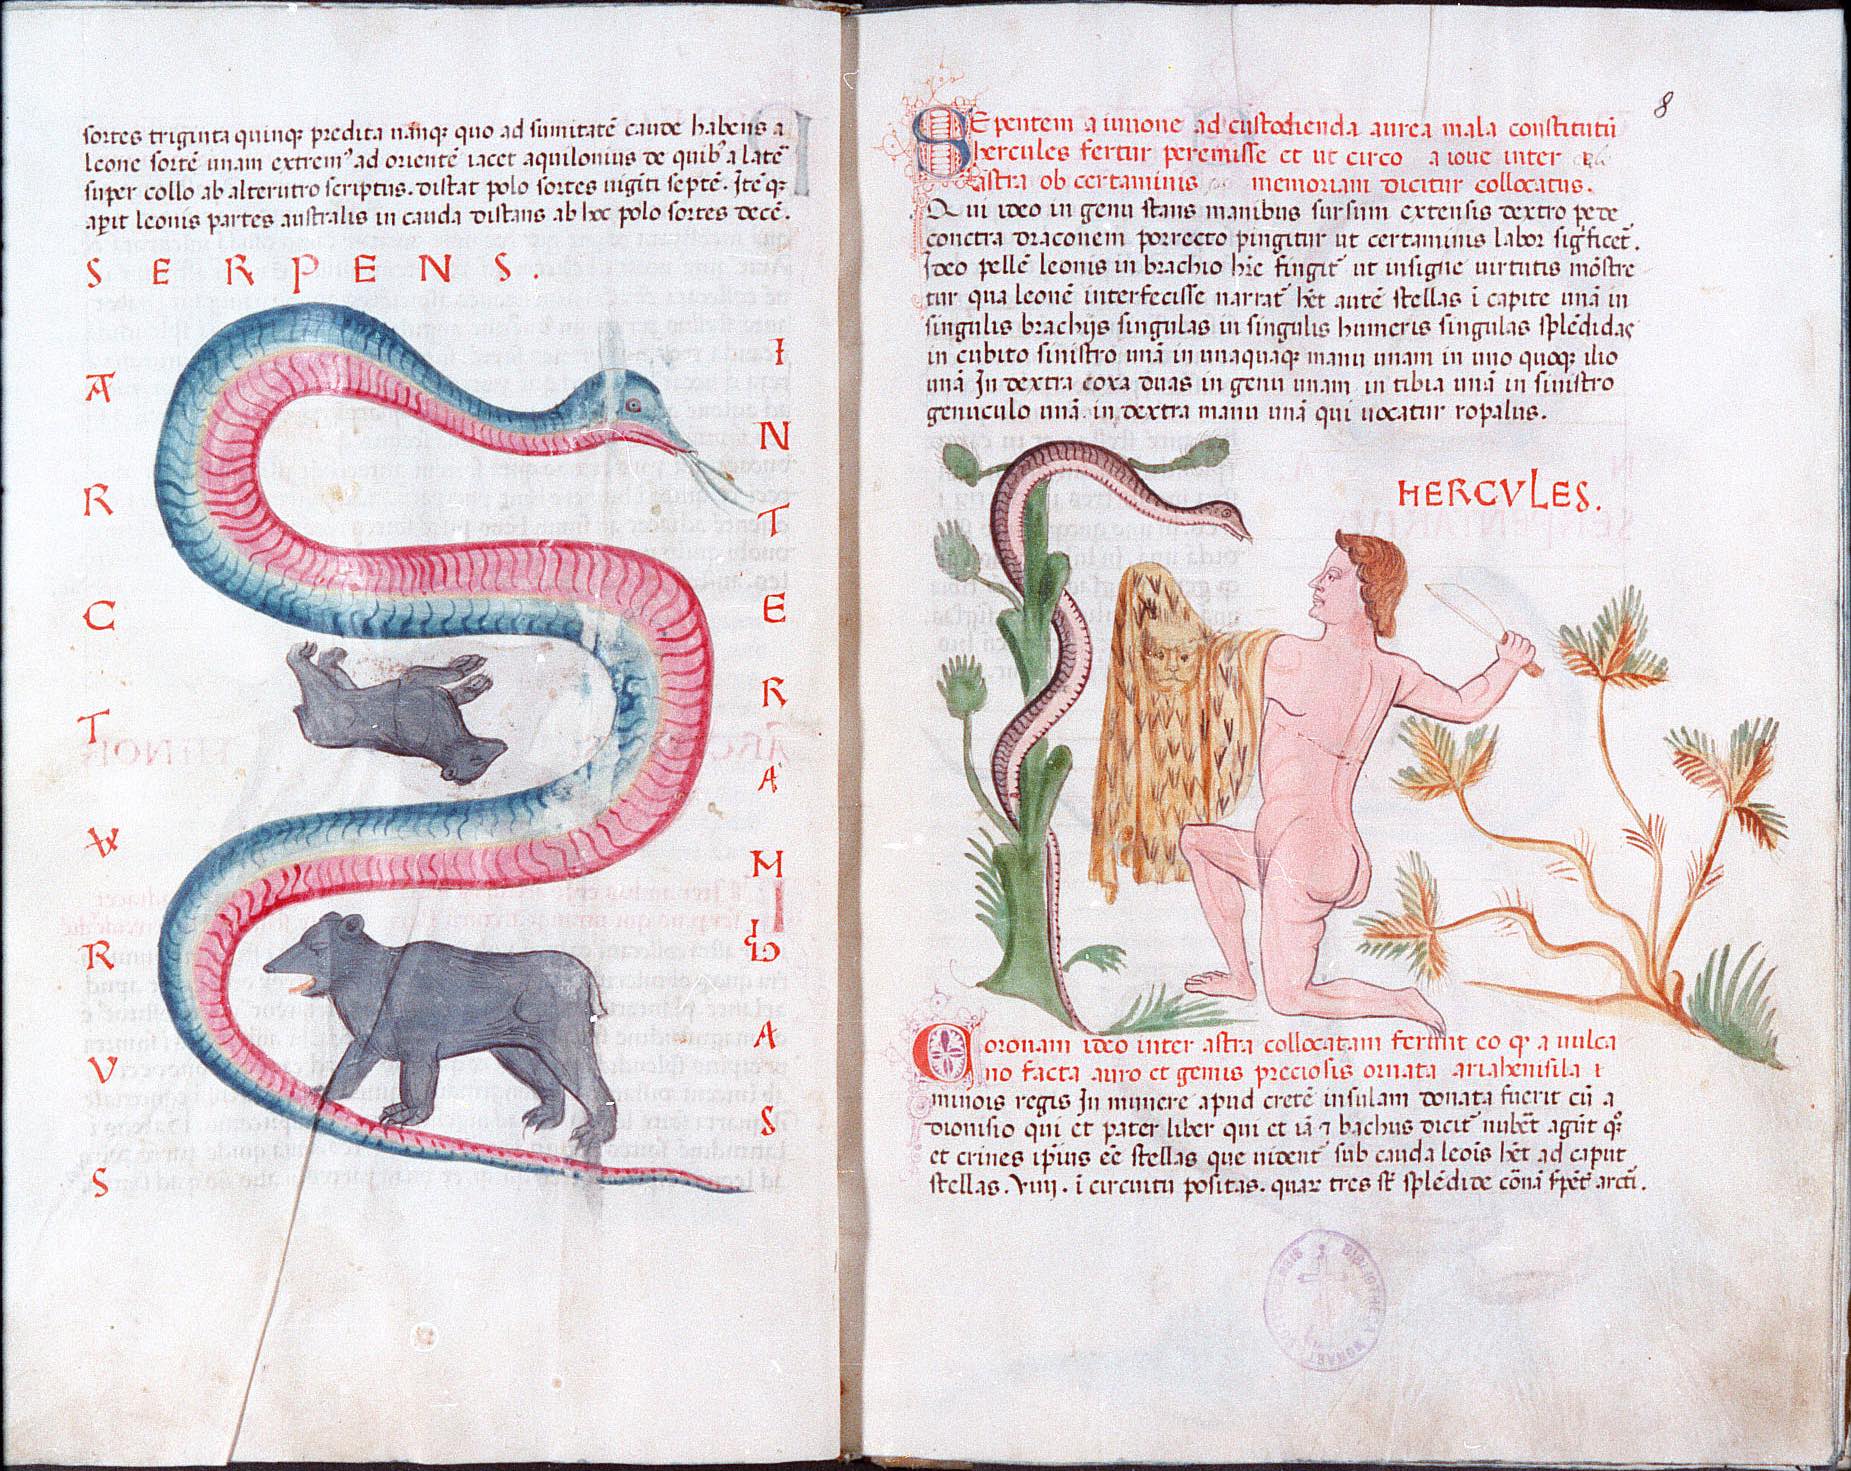 sortes triginta quinqꝫ predita nanqꝫ quo ad sumitatē caude habens a
leone sortē unam extremꝰ ad orientē iacet aquilonius de quibꝰ a latē
super collo ab alterutro scriptus. distat polo sortes uiginti septē. Itē qꝫ
apit leonis partes australis in cauda distans ab hoc polo sortes decē.
SERPENS.
ARCTWRVS
INTERAMBAS
8
SE pentem a iunone ad custodienda aurea mala constitutū
hercules fertur peremisse et ut circo a ioue inter
astra ob certaminis memoriam dicitur collocatus.
Qui ideo in genu stans manibus sursum extensis dextro pede
conctra draconem porrecto pingitur ut certaminis labor sigficet.
Ideo pellē leonis in brachio hr̄e fingit ut insigne uirtutis mōstre
tur qua leonē interfecisse narrat hēt autē stellas ī capite unā in
singulis brachijs singulas in singulis humeris singulas splēdidas
in cubito sinistro unā in unaquaqꝫ manu unam in uno quoqꝫ ilio
unā In dextra coxa duas in genu unam in tibia unā in sinistro
genuculo unā. in dextra manu unā qui uocatur ropalus.
HERCVLES.
Coronam ideo inter astra collocatam ferunt eo qꝫ a uulca
no facta auro et gemis preciosis ornata ariahenisila i
minois regis In munere apud cretē insulam donata fuerit cū a
dionisio qui et pater liber qui et iā bachus dicit nubēt agūt
et crines ipius eē stellas que uident sub cauda leois hēt ad caput
stellas. Viiij. ī circuitu positas. quaꝝ tres st splēdide